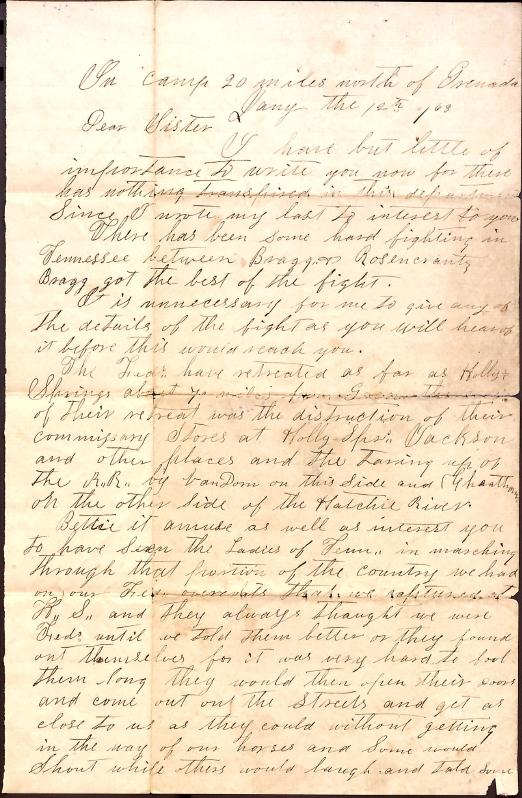 In camp 20 miles north of Grenada
Jany the 12th /63
Dear Sister
I have but little of
importance to write you now for there
has nothing transpired in this department
Since I wrote my last to interest to you
There has been some hard fighting in
Tennessee between Bragg & Rosencrantz
Bragg got the best of the fight.
It is unnecessary for me to give any of
the details of the fight as you will hear of
it before this would reach you.
The Feds. have retreated as far as Holly
Springs about miles from the
of their retreat was the distruction of their
commissary Stores at Holly Spr,, Jackson
and other places and the taring up of
the R,,R,, by VanDorn on this side and
on the other side of the Hatchie River.
Bettie it amuse as well as interest you
to have seen the Ladies of Tenn,, in marching
through that portion of the country we had
on our Fed. overcoats that we captured at
H,, S,, and they always thought we were
Feds until we told them better or they found
out themselves for it was very hard to fool
them long they would then open their doors
and come out on the Streets and get as
close to us as they could without getting
in the way of our horses and Some would
Shout while others would laugh and told some